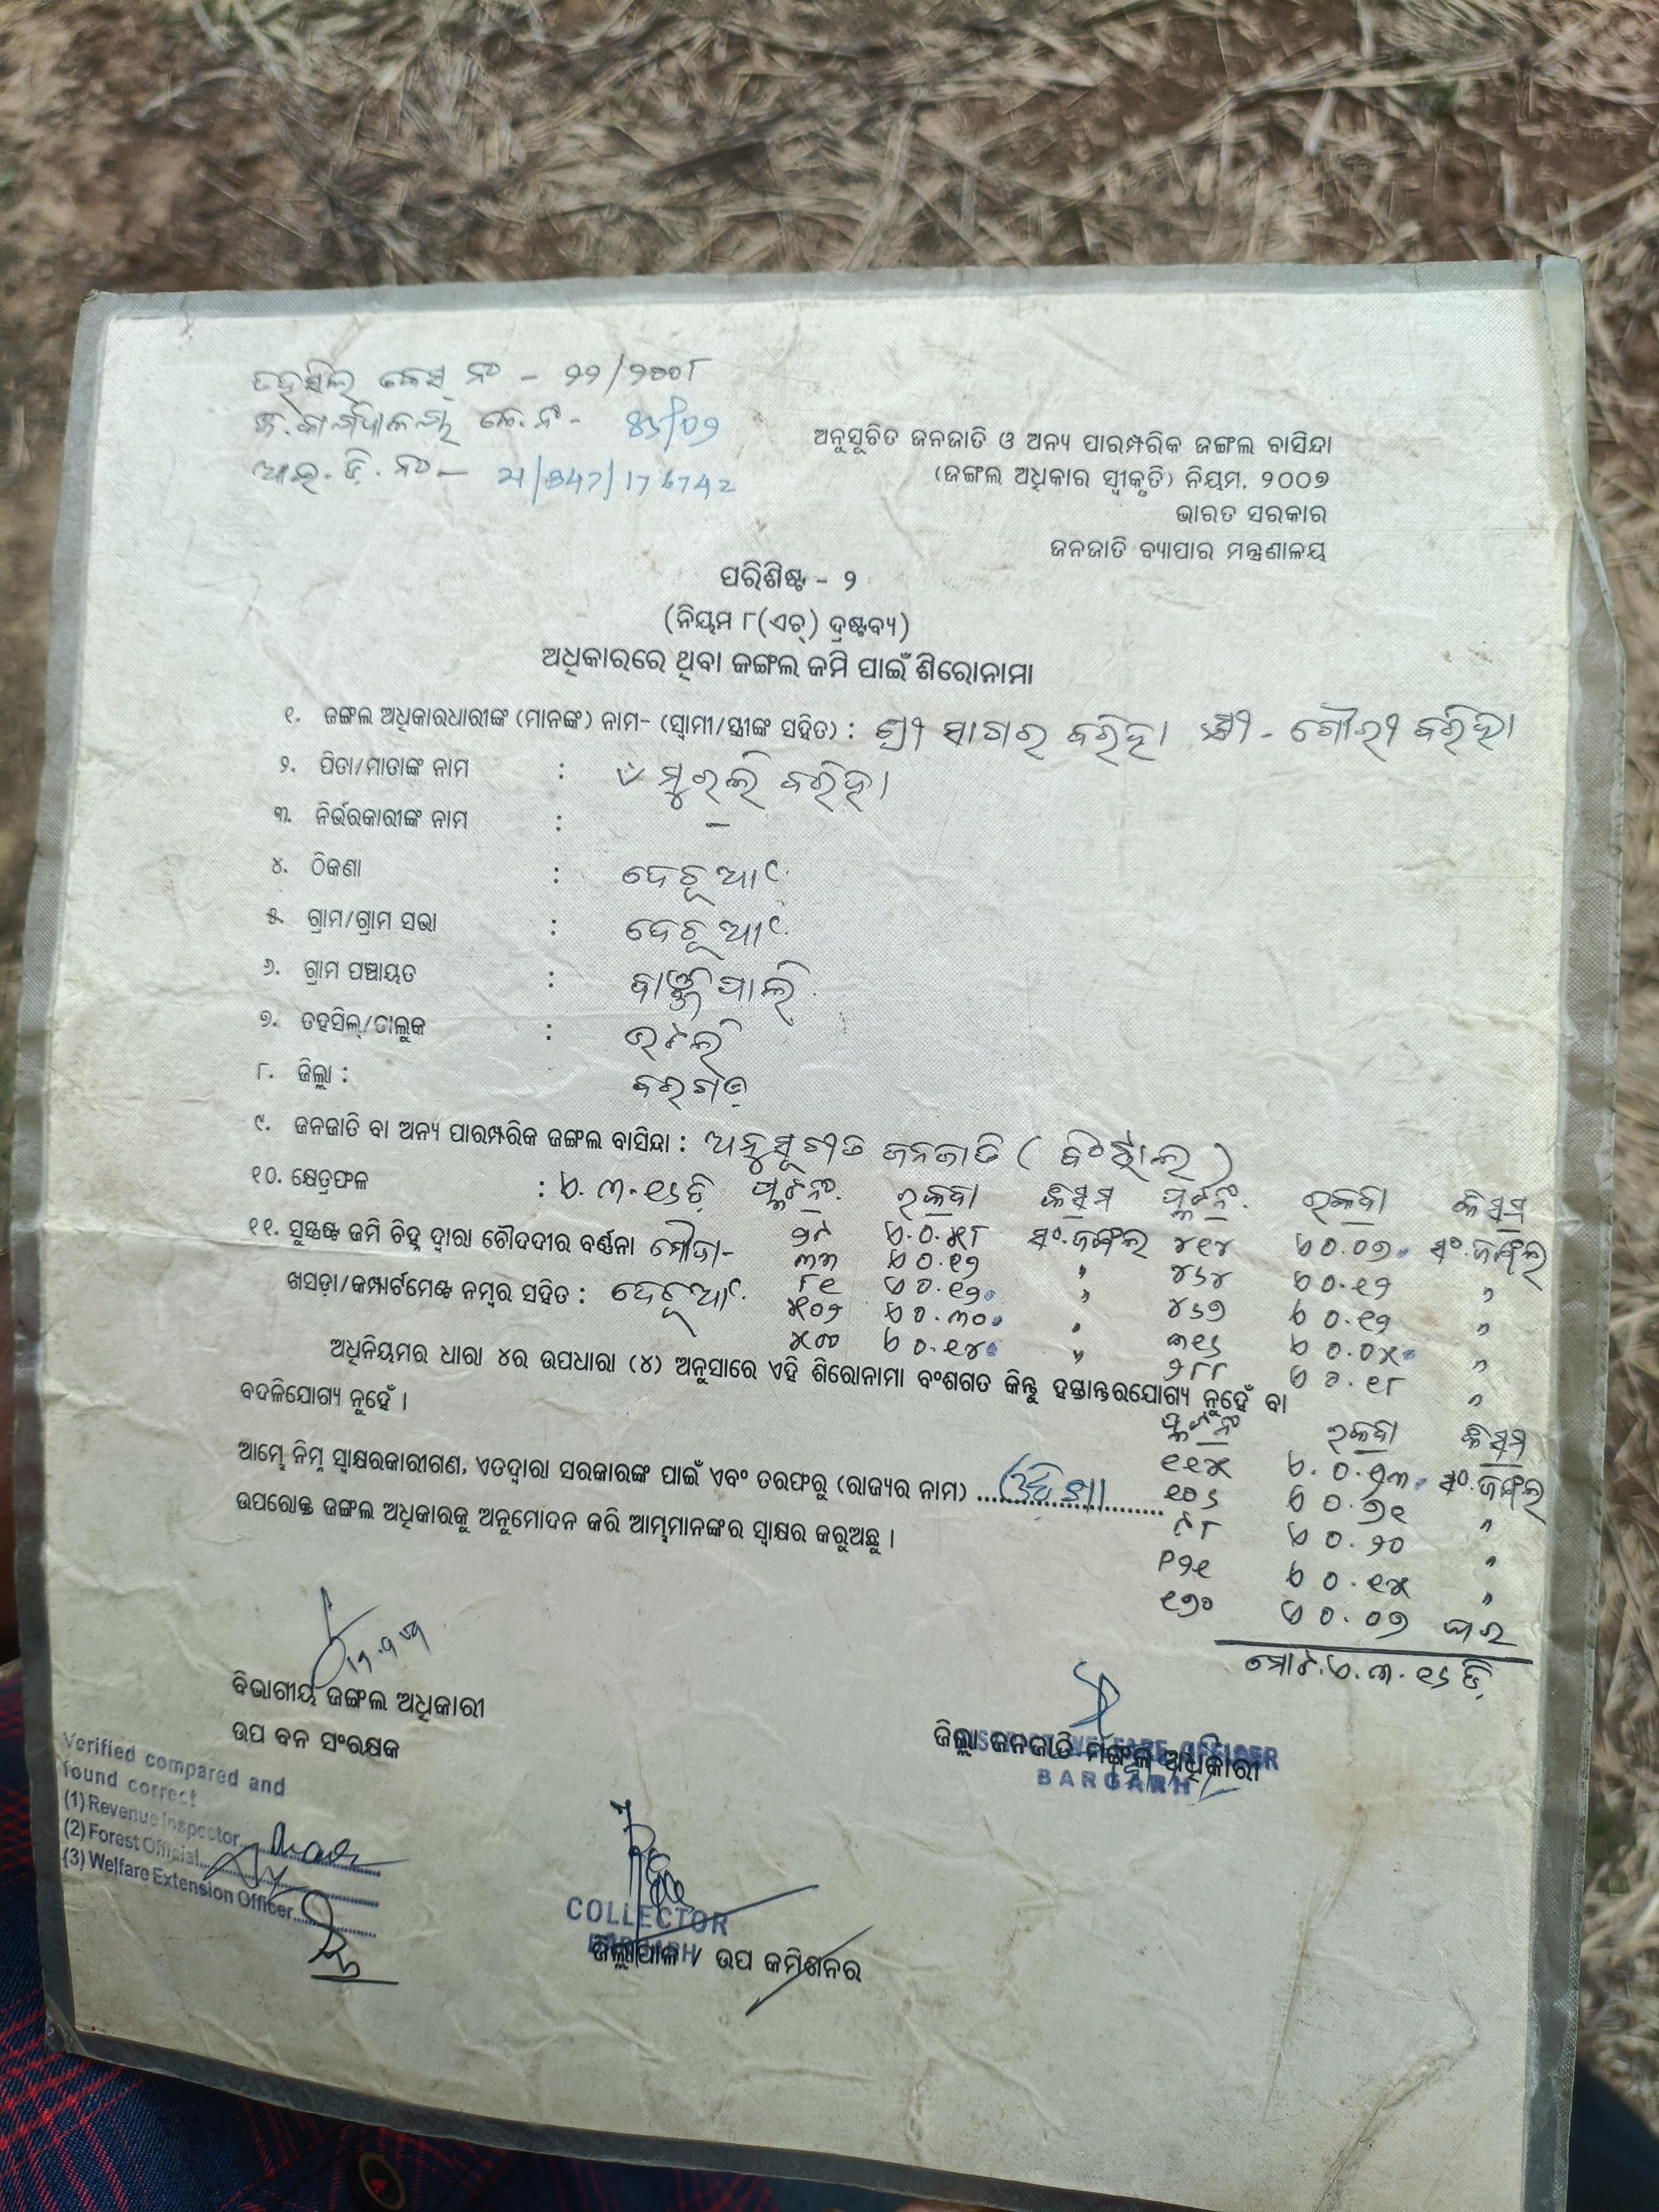 ତହସିଲ କେସ୍ ନଂ - ୨୨/୨୦୦୮
21/347/176742
ଅନୁସୂଚିତ ଜନଜାତି ଓ ଅନ୍ୟ ପାରମ୍ପରିକ ଜଙ୍ଗଲ ବାସିନ୍ଦା
(ଜଙ୍ଗଲ ଅଧିକାର ସ୍ୱୀକୃତି) ନିୟମ, ୨୦୦୭
ଭାରତ ସରକାର
ଜନଜାତି ବ୍ୟାପାର ମନ୍ତ୍ରଣାଳୟ
ପରିଶିଷ୍ଟ - ୨
(ନିୟମ ୮(ଏଚ୍) ଦ୍ରଷ୍ଟବ୍ୟ)
ଅଧିକାରରେ ଥିବା ଜଙ୍ଗଲ ଜମି ପାଇଁ ଶିରୋନାମା
୧. ଜଙ୍ଗଲ ଅଧିକାରଧାରୀଙ୍କ (ମାନଙ୍କ) ନାମ- (ସ୍ୱାମୀ/ସ୍ତ୍ରୀଙ୍କ ସହିତ) : ଶ୍ରୀ ସାଗର ବରିହା ସ୍ତ୍ରୀ - ଗୌରୀ ବରିହା
୨. ପିତା/ମାତାଙ୍କ ନାମ : ମୁରଲି ବରିହା
୩. ନିର୍ଭରକାରୀଙ୍କ ନାମ : -
୪. ଠିକଣା : ଦେଚୂଆଁ
୫. ଗ୍ରାମ/ଗ୍ରାମ ସଭା : ଦେଚୂଆଁ
୬. ଗ୍ରାମ ପଞ୍ଚାୟତ :
୭. ତହସିଲ୍/ତାଲୁକ : ଭଟଲି
୮. ଜିଲ୍ଲା : ବରଗଡ଼
୯. ଜନଜାତି ବା ଅନ୍ୟ ପାରମ୍ପରିକ ଜଙ୍ଗଲ ବାସିନ୍ଦା : ଅନୁସୂଚୀତ ଜନଜାତି (ବିଂଝାଲ)
୧୦. କ୍ଷେତ୍ରଫଳ : ଏ.୩.୧୬ ଡି ପ୍ଲଟନଂ. ରକବା କିସମ ପ୍ଲଟନଂ. ରକବା କିସମ
୧୧. ସୁସ୍ପଷ୍ଟ ଜମି ଚିହ୍ନ ଦ୍ୱାରା ଚୌଦଦୀର ବର୍ଣ୍ଣନା ମୌଜା- ୨୯ ଏ.୦.୪୮ ସଂ.ଜଙ୍ଗଲ ୪୧୪ ଏ ୦.୦୭ ସଂ.ଜଙ୍ଗଲ
୩୩ ଏ ୦.୧୨ " ୪୬୪ ଏ ୦.୧୨ "
ଖସଡ଼ା/କମ୍ପାର୍ଟମେଣ୍ଟ ନମ୍ବର ସହିତ : ଦେଚୂଆଁ ୮୧ ଏ ୦.୧୨ " ୪୬୭ ଏ ୦.୧୨ "
୫୦୨ ଏ ୦.୩୦ " ୩୧୬ ଏ ୦.୦୪ "
ଏ ୦.୧୪ " ୨୮୮ ଏ ୦.୧୮ "
ଅଧିନିୟମର ଧାରା ୪ର ଉପଧାରା (୪) ଅନୁସାରେ ଏହି ଶିରୋନାମା ବଂଶଗତ କିନ୍ତୁ ହସ୍ତାନ୍ତରଯୋଗ୍ୟ ନୁହେଁ ବା
ବଦଳିଯୋଗ୍ୟ ନୁହେଁ ।
ପ୍ଲଟନଂ ରକବା କିସମ
ଆମ୍ଭେ ନିମ୍ନ ସ୍ୱାକ୍ଷରକାରୀଗଣ, ଏତଦ୍ୱାରା ସରକାରଙ୍କ ପାଇଁ ଏବଂ ତରଫରୁ (ରାଜ୍ୟର ନାମ) ଓଡିଶା
ସଂ.ଜଙ୍ଗଲ
ଉପରୋକ୍ତ ଜଙ୍ଗଲ ଅଧିକାରକୁ ଅନୁମୋଦନ କରି ଆମ୍ଭମାନଙ୍କର ସ୍ୱାକ୍ଷର କରୁଅଛୁ ।
୧୦୬ ଏ ୦.୭୧ "
୯୮ ଏ ୦.୨୦ "
ଏ ୦.୧୪ "
୧୭୦ ଏ ୦.୦୭ ଘର
ମୋଟ.ଏ.୩.୧୬ ଡି
ବିଭାଗୀୟ ଜଙ୍ଗଲ ଅଧିକାରୀ
ଉପ ବନ ସଂରକ୍ଷକ
ଜିଲ୍ଲା ଜନଜାତି ମଙ୍ଗଳ ଅଧିକାରୀ
DISTRICT WELFARE OFFICER
BARGARH
Verified compared and
found correct
(1) Revenue Inspector
(2) Forest Official
(3) Welfare Extension Officer
COLLECTOR
BARGARH
ଜିଲ୍ଲାପାଳ / ଉପ କମିଶନର